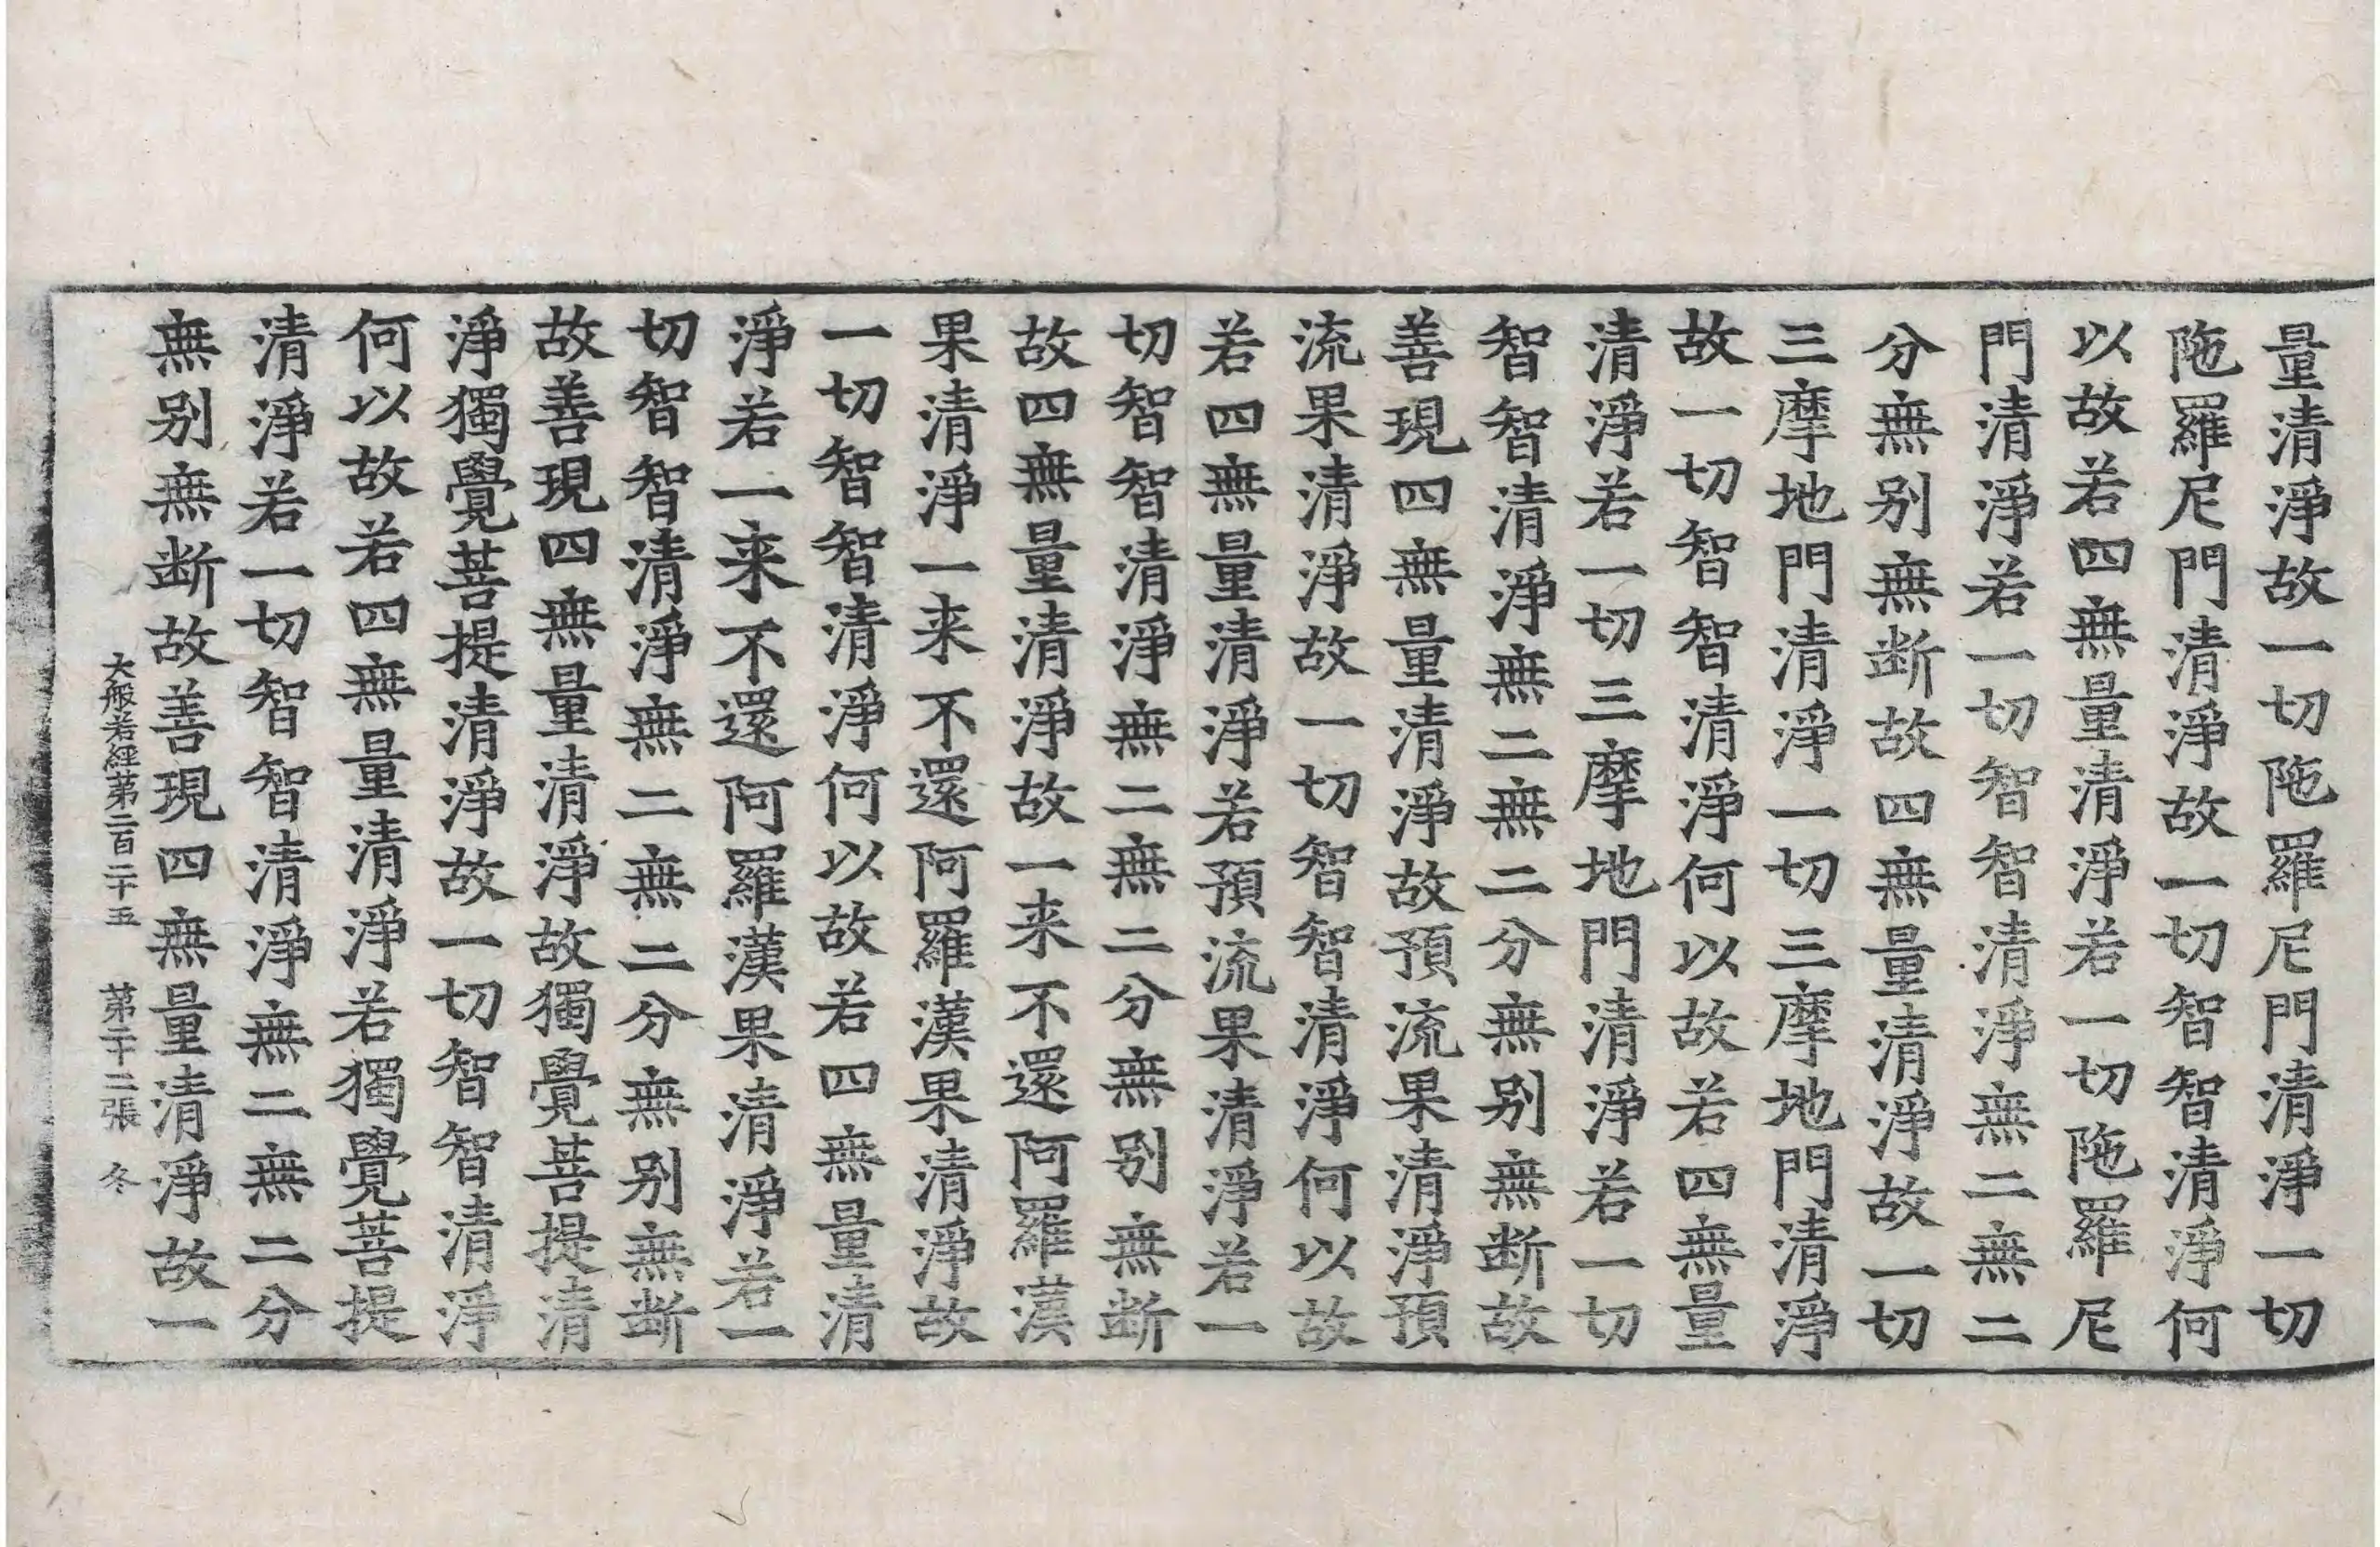 量清淨故一切陁羅尼門清淨一切
陁羅尼門清淨故一切智智清淨何
以故若四無量清淨若一切陁羅尼
門清淨若一切智智清淨無二無二
分無别無断故四無量清淨故一切
三摩地門清淨一切三摩地門清淨
故一切智智清淨何以故若四無量
清淨若一切三摩地門清淨若一切
智智清淨無二無二分無别無断故
善現四無量清淨故預流果清淨預
流果清淨故一切智智清淨何以故
若四無量清淨若預流果清淨若一
切智智清淨無二無二分無别無断
故四無量清淨故一来不還阿羅漢
果清淨一来不還阿羅漢果清淨故
一切智智清淨何以故若四無量清
淨若一来不還阿羅漢果清淨若一
切智智清淨無二無二分無别無断
故善現四無量清淨故獨覺菩提清
淨獨覺菩提清淨故一切智智清淨
何以故若四無量清淨若獨覺菩提
清淨若一切智智清淨無二無二分
無别無断故善現四無量清淨故一
大般若經第二百二十五 第二十二張 冬